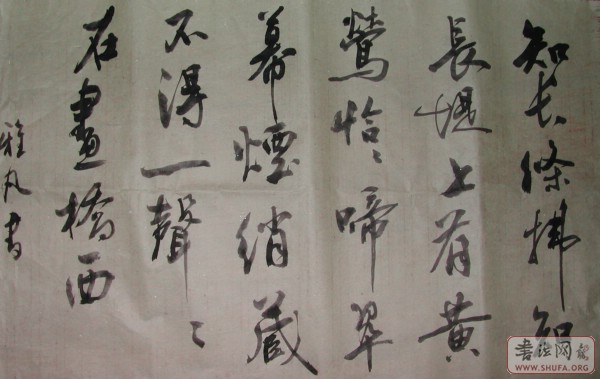 知长條拂知
長堤上有黄
鶯恰〻啼翠
幕煙綃藏
不得一聲〻
在畫橋西
雅凡書
書法网報
WWW.SHUFA.ORG